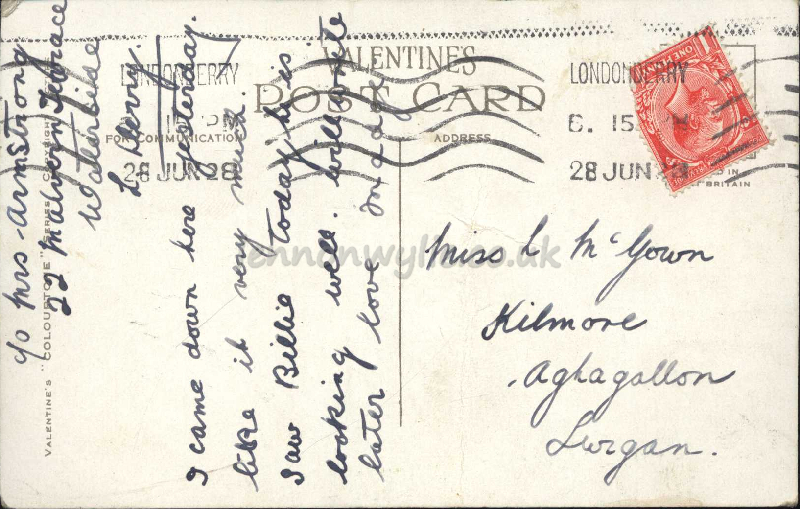 VALENTINE'S
POST CARD
FOR COMMUNICATION
ADDRESS
LONDONDERRY
6. 15 PM
28 JUN 28
LONDONDERRY
15 PM
28 JUN 28
ONE PENNY
1
IN
BRITAIN
VALENTINE'S "COLOURTONE" SERIES
c/o Mrs Armstrong
22 Malvern Terrace
Waterside
L'Derry.
I came down here yesterday.
like it very much.
Saw Billie today he is
looking well. will write
later love
Miss L McGown
Kilmore
Aghagallon
Lurgan.
ennonwylie.co.uk